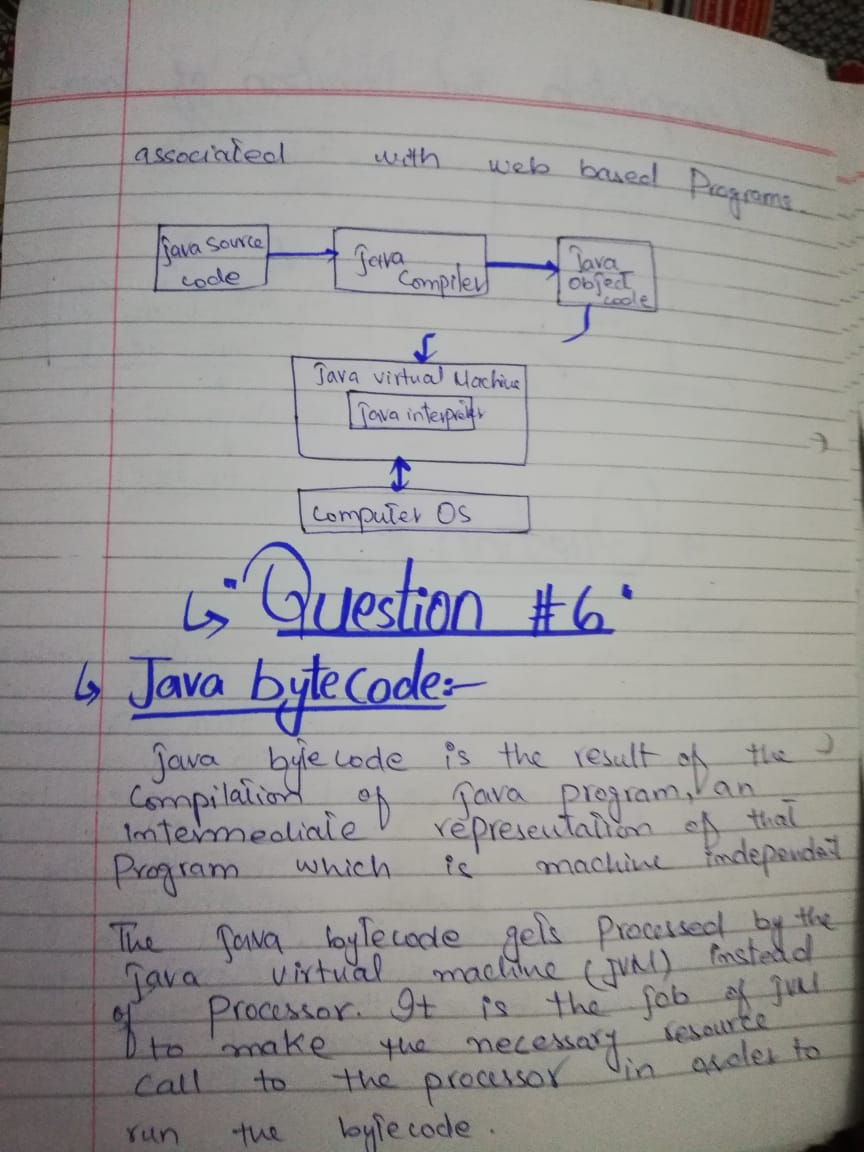 associated with web based Programs.
Java source code
Java Compiler
Java object code
Java virtual Machine
Java interpreter
Computer OS
Question #6
Java bytecode:-
Java bytecode is the result of the
Compilation of Java program, an
intermediate representation of that
Program which is machine independent
The Java bytecode gets Processed by the
Java virtual machine (JVM) instead
of Processor. It is the job of JVM
to make the necessary resource
call to the processor in order to
run the bytecode.